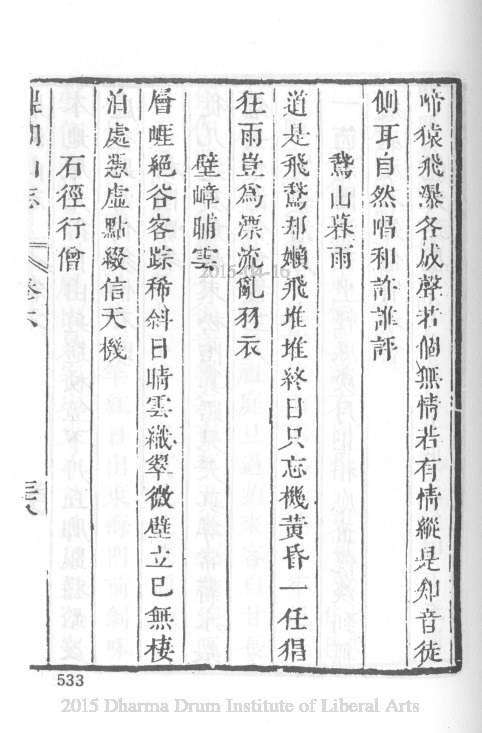 啼猿飛瀑各成聲若個無情若有情縱是知音徒
側耳自然唱和許誰評
鵞山暮雨
道是飛鵞却嬾飛堆堆終日只忘機黃昏一任猖
狂雨豈為漂流亂羽衣
壁嶂晡雲
層崕絕谷客踪稀斜日晴雲織翠微壁立已無棲
泊處憑虛點綴信天機
石徑行僧
鼎湖山志
卷六
533
2015-04-16
2015 Dharma Drum Institute of Liberal Arts